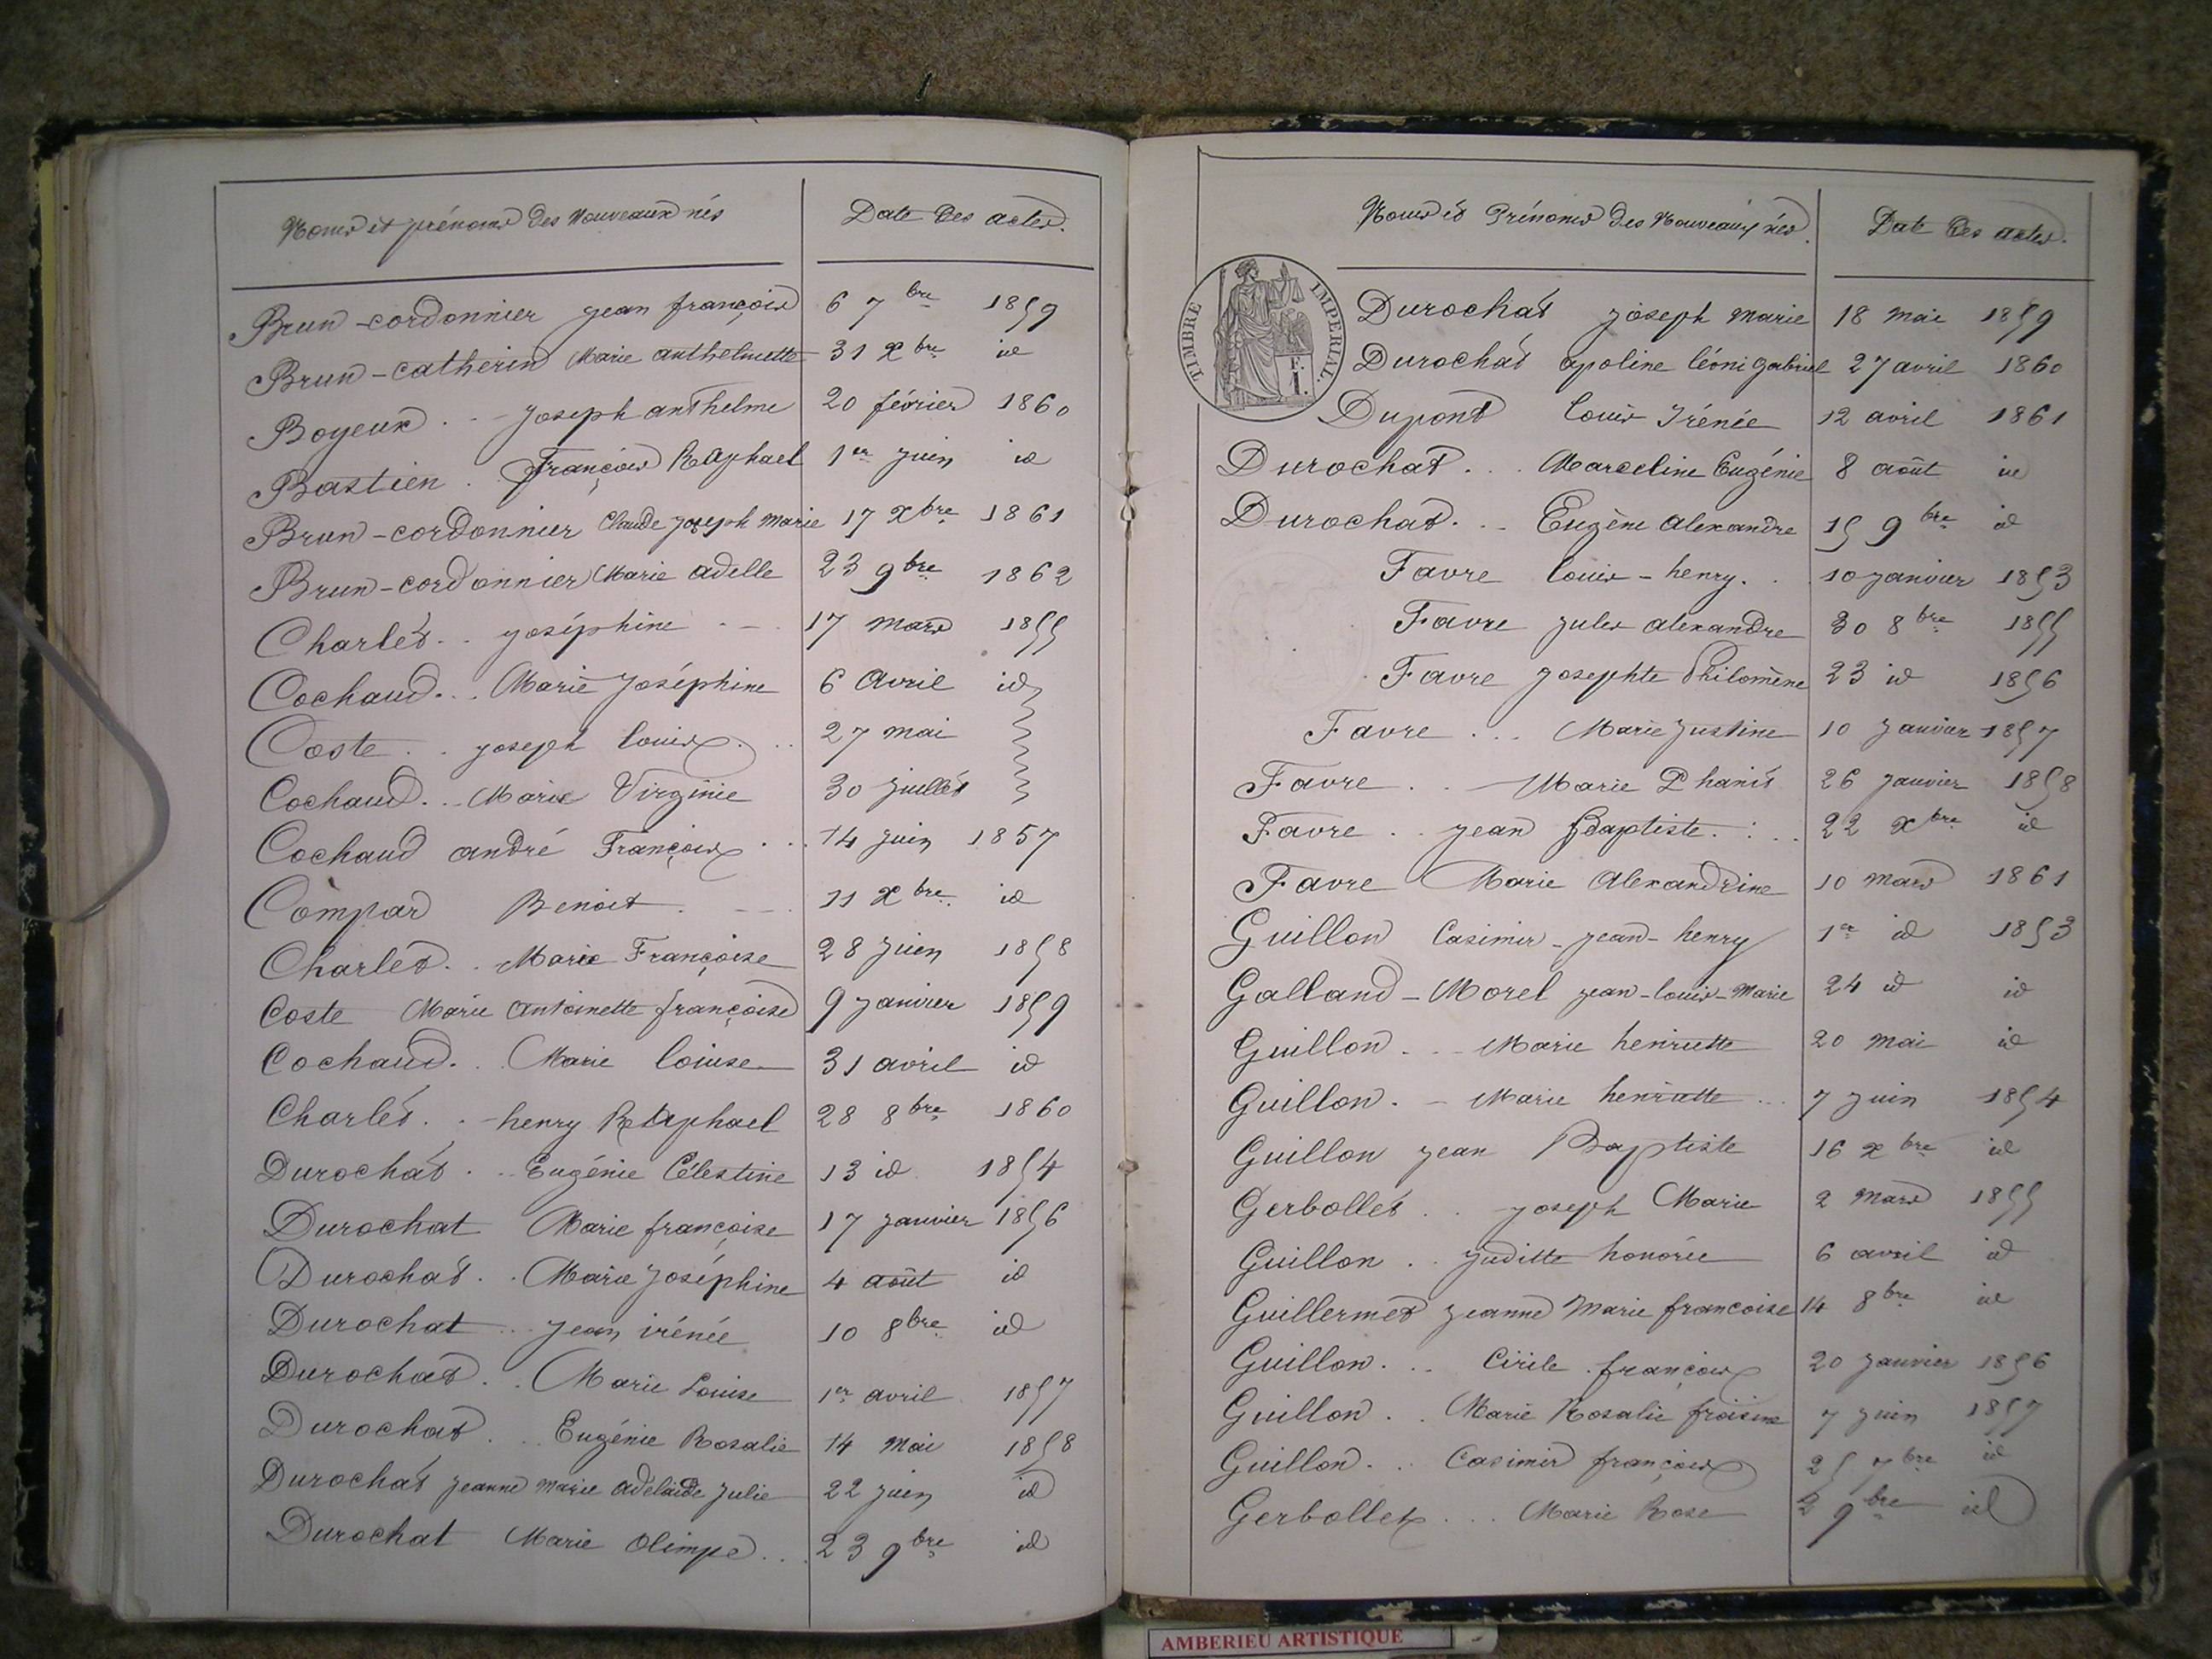 Noms et prénoms des Nouveaux nés Date des actes.
Brun-cordonnier jean françois 6 7bre 1859
Brun-catherin Marie anthelmette 31 xbre id
Boyeux . . joseph anthelme 20 février 1860
Bastien . François Raphael 1er juin id
Brun-cordonnier Claude joseph marie 17 xbre 1861
Brun-cordonnier Marie adelle 23 9bre 1862
Charlet . . joséphine . - 17 mars 1855
Cochaud . . . Marie Joséphine 6 Avril id
Coste . . joseph louis . . . 27 mai
Cochaud . . . Marie Virginie 30 juillet
Cochaud andré François . . . 14 juin 1857
Compar Benoit . - - . 11 xbre id
Charlet . . Marie Françoise 28 juin 1858
Coste Marie antoinette françoise 9 janvier 1859
Cochaud . . Marie loiuse 31 avril id
Charlet . . henry Raphael 28 8bre 1860
Durochat . . . Eugénie Célestine 13 id 1854
Durochat Marie françoise 17 janvier 1856
Durochat . . Marie Joséphine 4 août id
Durochat . . . jean irénée 10 8bre id
Durochat . . Marie Louise 1er avril 1857
Durochat . . . Eugénie Rosalie 14 mai 1858
Durochat jeanne marie adélaide julie 22 juin id
Durochat Marie Olimpe . . . 23 9bre id
Noms et Prénoms des Nouveaux nés. Date des actes.
TIMBRE IMPERIAL.
Durochat joseph marie 18 mai 1859
Durochat apoline léoni gabriel 27 avril 1860
Dupont louis Irénée 12 avril 1861
Durochat . . . Marceline Eugénie 8 août id
Durochat . . . Eugène alexandre 15 9bre id
Favre louis-henry . . 10 janvier 1853
Favre jules alexandre 30 8bre 1855
Favre josephte Philomène 23 id 1856
Favre . . . Marie justine 10 janvier 1857
Favre . . . Marie Phanit 26 janvier 1858
Favre . . jean Baptiste . : . 22 xbre id
Favre Marie Alexandrine 10 mars 1861
Guillon Casimir-jean-henry 1er id 1853
Galland-Morel jean-louis-Marie 24 id id
Guillon . . . Marie henriette 20 mai id
Guillon . - Marie henriette . . . 7 juin 1854
Guillon jean Baptiste 16 xbre id
Gerbollet . . joseph Marie 2 mars 1855
Guillon . . juditte honorée 6 avril id
Guillermet jeanne marie francoise 14 8bre id
Guillon . . . Cirile françois 20 janvier 1856
Guillon . . Marie Rosalie froisine 7 juin 1857
Guillon . . . Casimir françois 25 7bre id
Gerbollet . . . Marie Rose 2 9bre id
AMBERIEU ARTISTIQUE